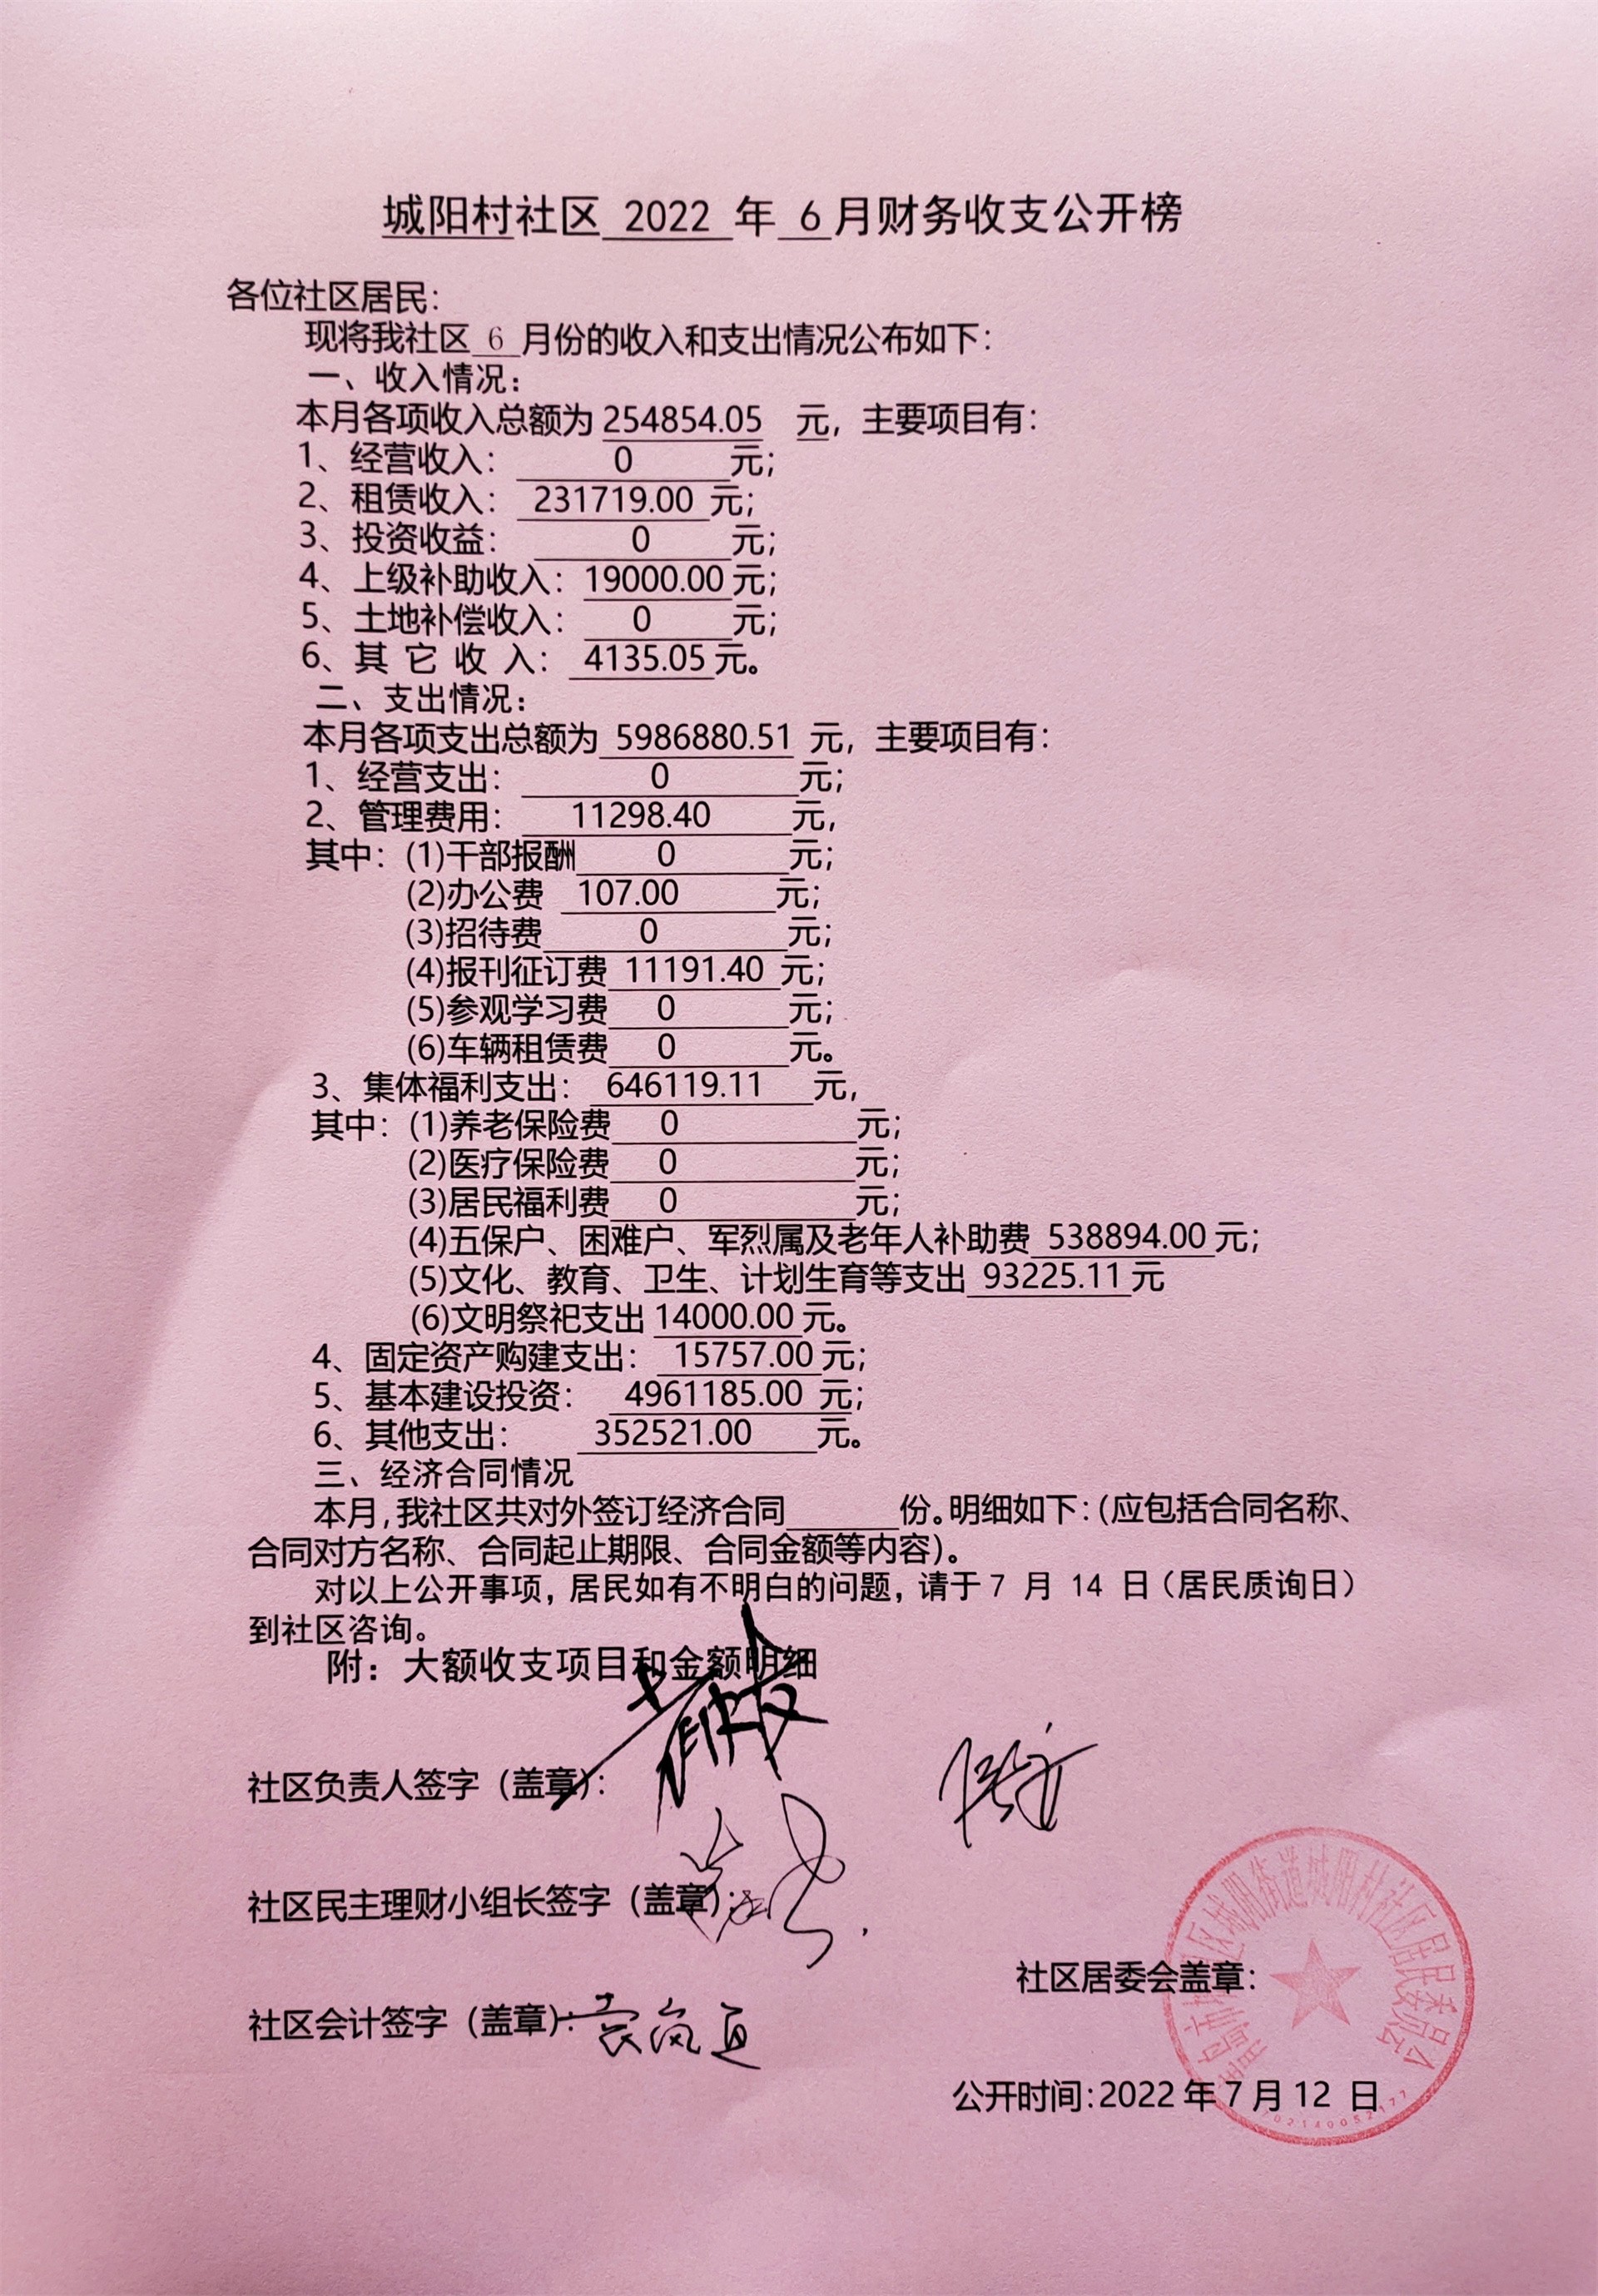 城阳村社区 2022 年 6 月财务收支公开榜
各位社区居民：
现将我社区 6 月份的收入和支出情况公布如下：
一、收入情况：
本月各项收入总额为 254854.05 元，主要项目有：
1、经营收入： 0 元；
2、租赁收入： 231719.00 元；
3、投资收益： 0 元；
4、上级补助收入： 19000.00 元；
5、土地补偿收入： 0 元；
6、其 它 收 入： 4135.05 元。
二、支出情况：
本月各项支出总额为 5986880.51 元，主要项目有：
1、经营支出： 0 元；
2、管理费用： 11298.40 元，
其中：(1)干部报酬 0 元；
(2)办公费 107.00 元；
(3)招待费 0 元；
(4)报刊征订费 11191.40 元；
(5)参观学习费 0 元；
(6)车辆租赁费 0 元。
3、集体福利支出： 646119.11 元，
其中：(1)养老保险费 0 元；
(2)医疗保险费 0 元；
(3)居民福利费 0 元；
(4)五保户、困难户、军烈属及老年人补助费 538894.00 元；
(5)文化、教育、卫生、计划生育等支出 93225.11 元
(6)文明祭祀支出 14000.00 元。
4、固定资产购建支出： 15757.00 元；
5、基本建设投资： 4961185.00 元；
6、其他支出： 352521.00 元。
三、经济合同情况
本月，我社区共对外签订经济合同 份。明细如下：（应包括合同名称、
合同对方名称、合同起止期限、合同金额等内容）。
对以上公开事项，居民如有不明白的问题，请于 7 月 14 日（居民质询日）
到社区咨询。
附：大额收支项目和金额明细
社区负责人签字（盖章）：
社区民主理财小组长签字（盖章）：
社区居委会盖章：
社区会计签字（盖章）：
公开时间：2022 年 7 月 12 日
城阳街道城阳村社区居民委员会